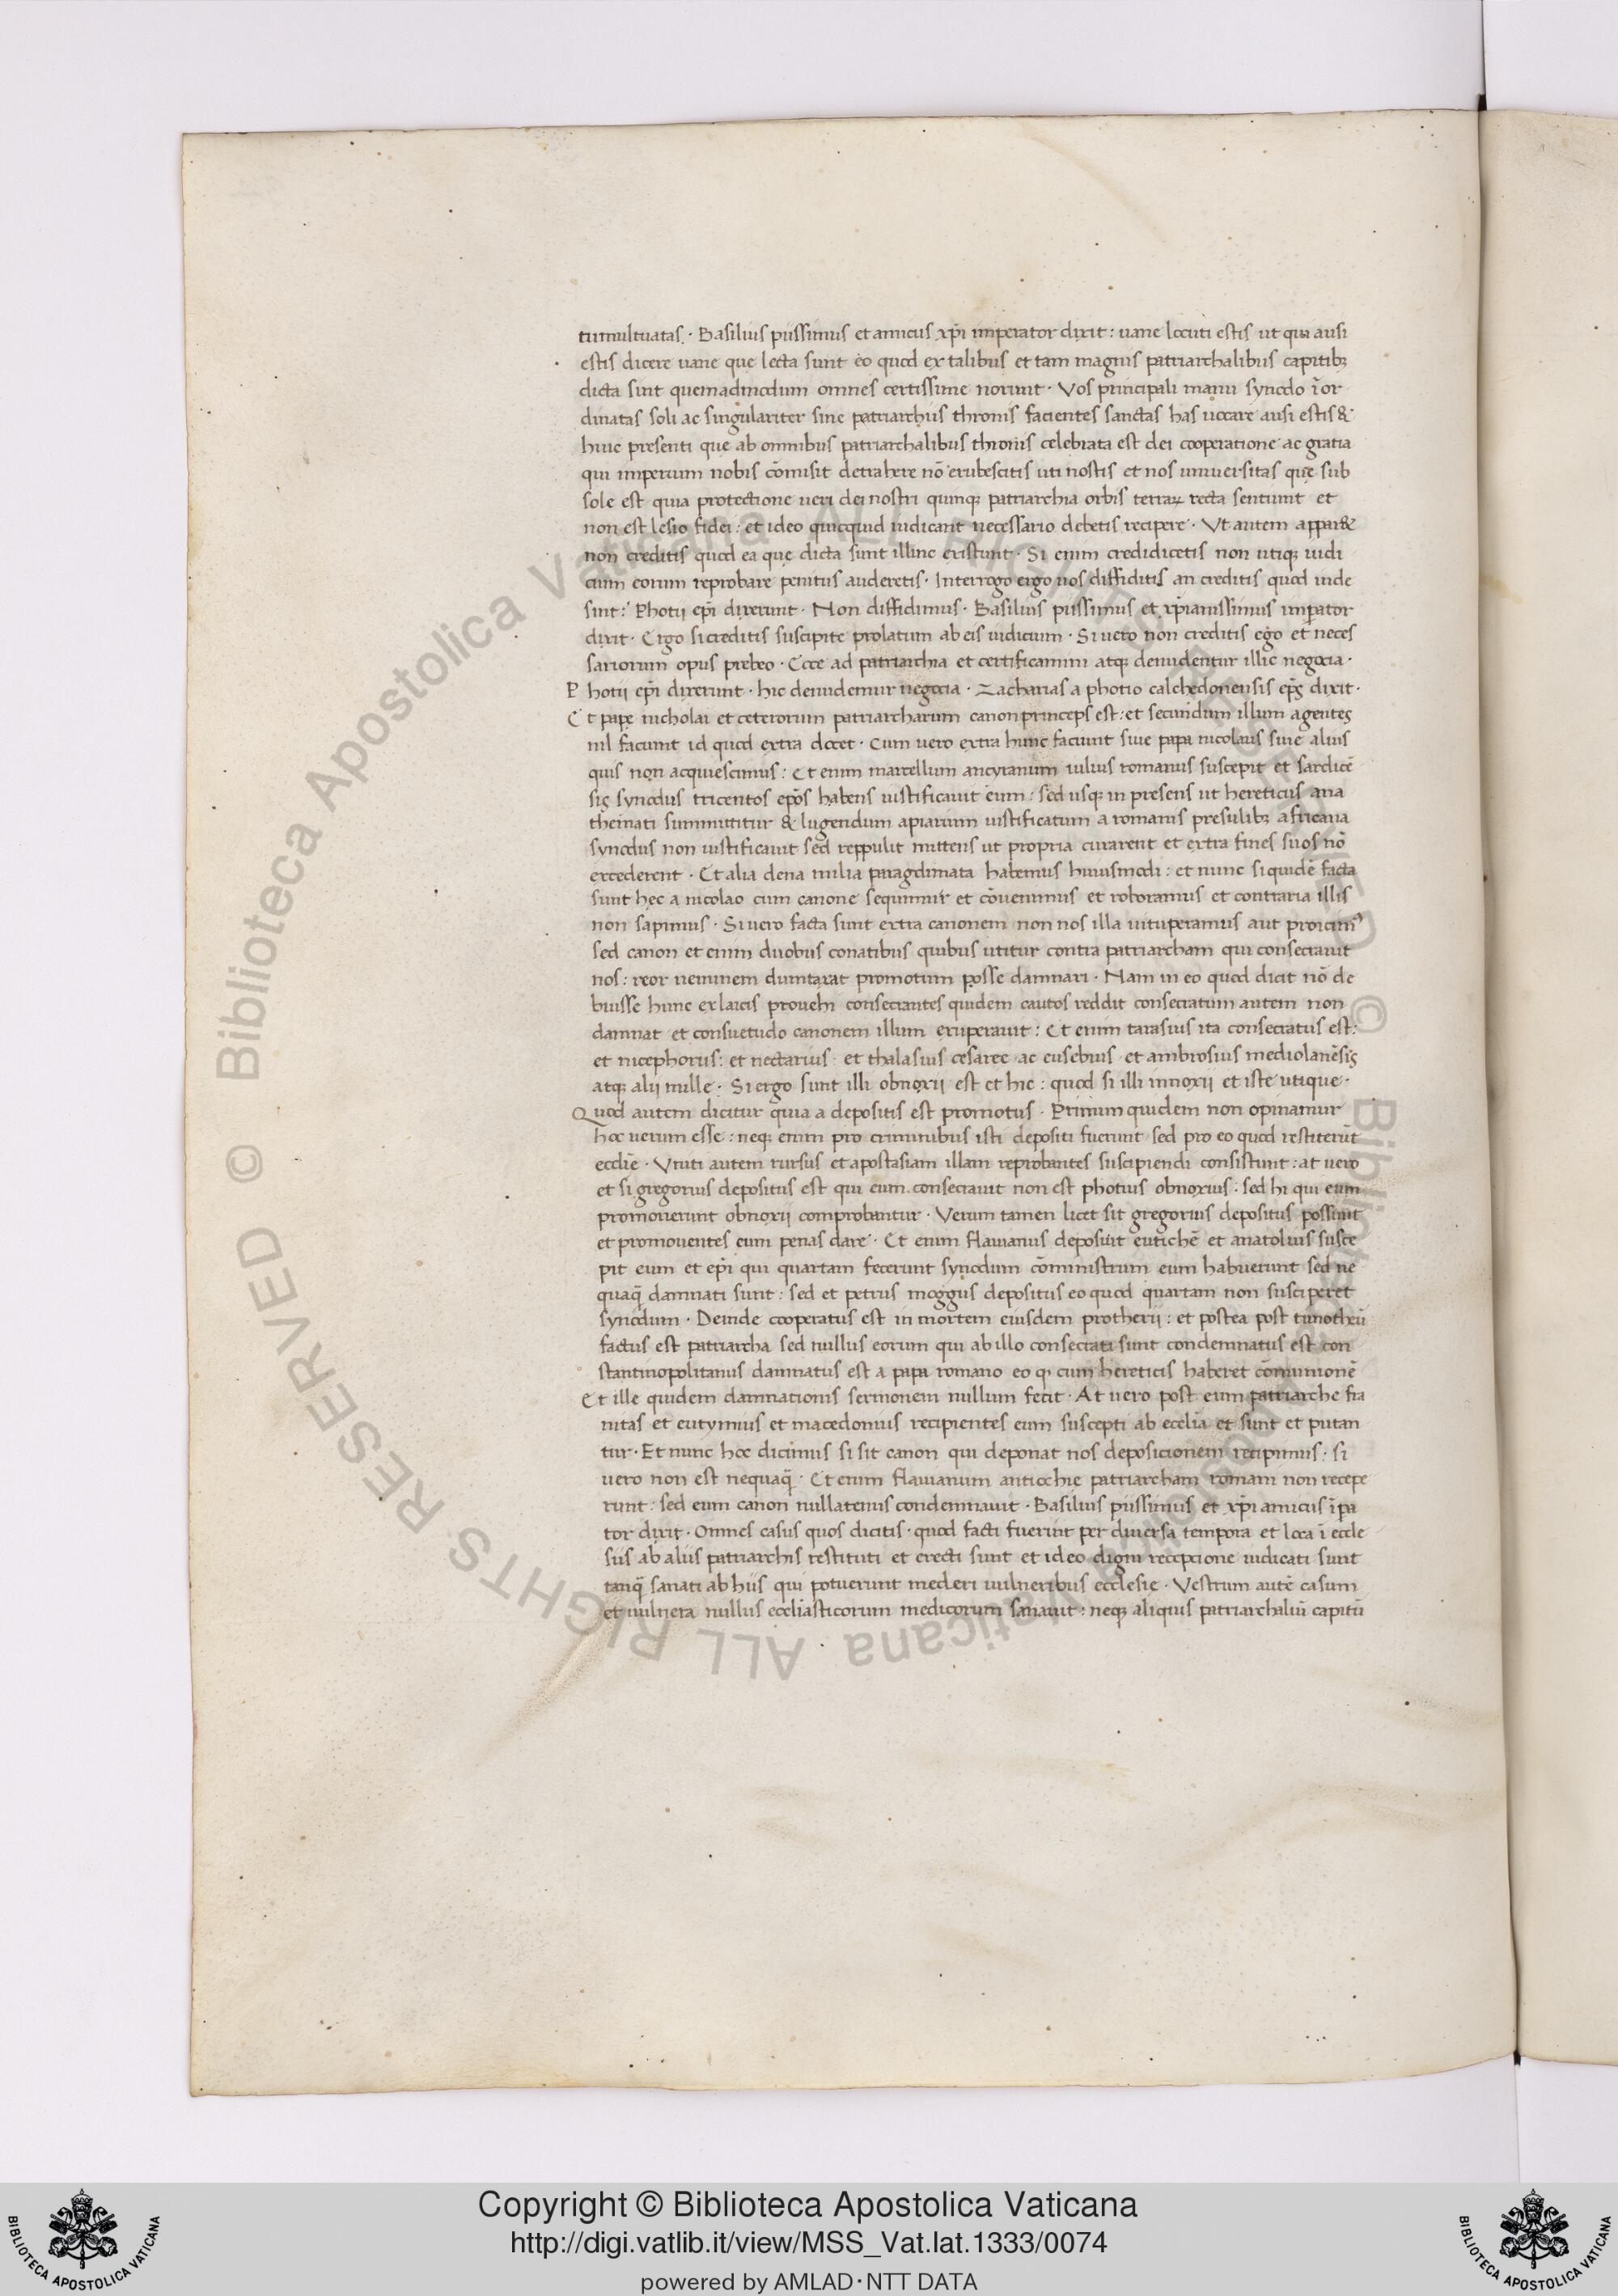 tumultuatas · Basilius piissimus et amicus xp̄i imperator dixit : uane locuti estis ut qui ausi
estis dicere uane que lecta sunt eo quod ex talibus et tam magnis patriarchalibus capitibꝫ
dicta sint quemadmodum omnes certissime norunt · Vos principali manu synodo īor
dinatas soli ac singulariter sine patriarchiis thronis facientes sanctas has uocare ausi estis &
huic presenti que ab omnibus patriarchalibus thronis celebrata est dei cooperatione ac gratia
qui imperium nobis cōmisit detrahere nō erubescitis uti nostis et nos uniuersitas que sub
sole est quia protectione ueri dei nostri quinqꝫ patriarchia orbis terraꝝ recta sentiunt et
non est lesio fidei : et ideo quicquid iudicant necessario debetis recipere · Vt autem appar&
non creditis quod ea que dicta sunt illinc existunt · Si enim credidicetis non utiqꝫ iudi
cium eorum reprobare penitus auderetis · Interrogo ergo uos diffiditis an creditis quod inde
sint : Photii ep̄i dixerunt · Non diffidimus · Basilius piissimus et xp̄ianissimus imꝑator
dixit · Ergo si creditis suscipite prolatum ab eis iudicium · Si uero non creditis ego et neces
sariorum opus prebeo · Ecce ad patriarchia et certificamini atqꝫ deuidentur illic negocia ·
Photii ep̄i dixerunt · hic deuidemur negocia · Zacharias a photio calchedonensis ep̄s dixit ·
Et pape nicholai et ceterorum patriarcharum canon princeps est : et secundum illum agentes
nil faciunt id quod extra docet · Cum uero extra hunc faciunt siue papa nicolaus siue alius
quis non acquiescimus : Et enim marcellum ancyranum iulius romanus suscepit et sardicē
sis synodus tricentos ep̄os habens iustificauit eum : sed usqꝫ in presens ut hereticus ana
themati summittitur & lugendum apiarium iustificatum a romanis presulibꝫ africana
synodus non iustificauit sed reppulit mittens ut propria curarent et extra fines suos nō
excederent · Et alia dena milia paragdimata habemus huiusmodi : et nunc si quidē facta
sunt hec a nicolao cum canone sequimur et cōuenimus et roboramus et contraria illis
non sapimus · Si uero facta sunt extra canonem non nos illa uituperamus aut proicimꝰ
sed canon et enim duobus conatibus quibus utitur contra patriarcham qui consecrauit
nos : reor neminem dumtaxat promotum posse damnari · Nam in eo quod dicit nō de
buisse hunc ex laicis prouehi consecrantes quidem cautos reddit consecratum autem non
damnat et consuetudo canonem illum exuperauit : Et enim tarasius ita consecratus est :
et nicephorus : et nectarius et thalasius cesaree ac eusebius et ambrosius mediolanēsis
atqꝫ alij mille · Si ergo sunt illi obnoxii est et hic : quod si illi innoxii et iste utique ·
Quod autem dicitur quia a depositis est promotus · Primum quidem non opinamur
hoc uerum esse : neqꝫ enim pro criminibus isti depositi fuerunt sed pro eo quod restiterūt
eccl̄ie · Vniti autem rursus et apostasiam illam reprobantes suscipiendi consistunt : at uero
et si gregorius depositus est qui eum consecrauit non est photius obnoxius : sed hi qui eum
promouerunt obnoxii comprobantur · Verum tamen licet sit gregorius depositus possunt
et promouentes eum penas dare · Et enim flauianus deposuit eutichē et anatolius susce
pit eum et ep̄i qui quartam fecerunt synodum cōministrum eum habuerunt sed ne
quaq̄ damnati sunt : sed et petrus moggus depositus eo quod quartam non susciperet
synodum · Deinde cooperatus est in mortem eiusdem protherii : et postea post timotheū
factus est patriarcha sed nullus eorum qui ab illo consecrati sunt condemnatus est con
stantinopolitanus damnatus est a papa romano eo ꝙ cum hereticis haberet cōmunionē
Et ille quidem damnationis sermonem nullum fecit · At uero post eum patriarche fra
uitas et eutymius et macedonius recipientes eum suscepti ab eccl̄ia et sunt et putan
tur · Et nunc hoc dicimus si sit canon qui deponat nos deposicionem recipimus · si
uero non est nequaq̄ · Et enim flauianum antiochie patriarcham romani non recepe
runt : sed eum canon nullatenus condemnauit · Basilius piissimus et xp̄i amicus īpa
tor dixit · Omnes casus quos dicitis · quod facti fuerint per diuersa tempora et loca ī eccle
siis ab aliis patriarchis restituti et erecti sunt et ideo digni recepcione iudicati sunt
tanq̄ sanati ab hiis qui potuerunt mederi uulneribus ecclesie · Vestrum autē casum
et uulnera nullus eccl̄iasticorum medicorum sanauit : neqꝫ aliquis patriarchaliū capitū
© Biblioteca Apostolica Vaticana ALL RIGHTS RESERVED © Biblioteca Apostolica Vaticana ALL RIGHTS RESERVED
Copyright © Biblioteca Apostolica Vaticana
http://digi.vatlib.it/view/MSS_Vat.lat.1333/0074
powered by AMLAD·NTT DATA
BIBLIOTECA APOSTOLICA VATICANA
BIBLIOTECA APOSTOLICA VATICANA